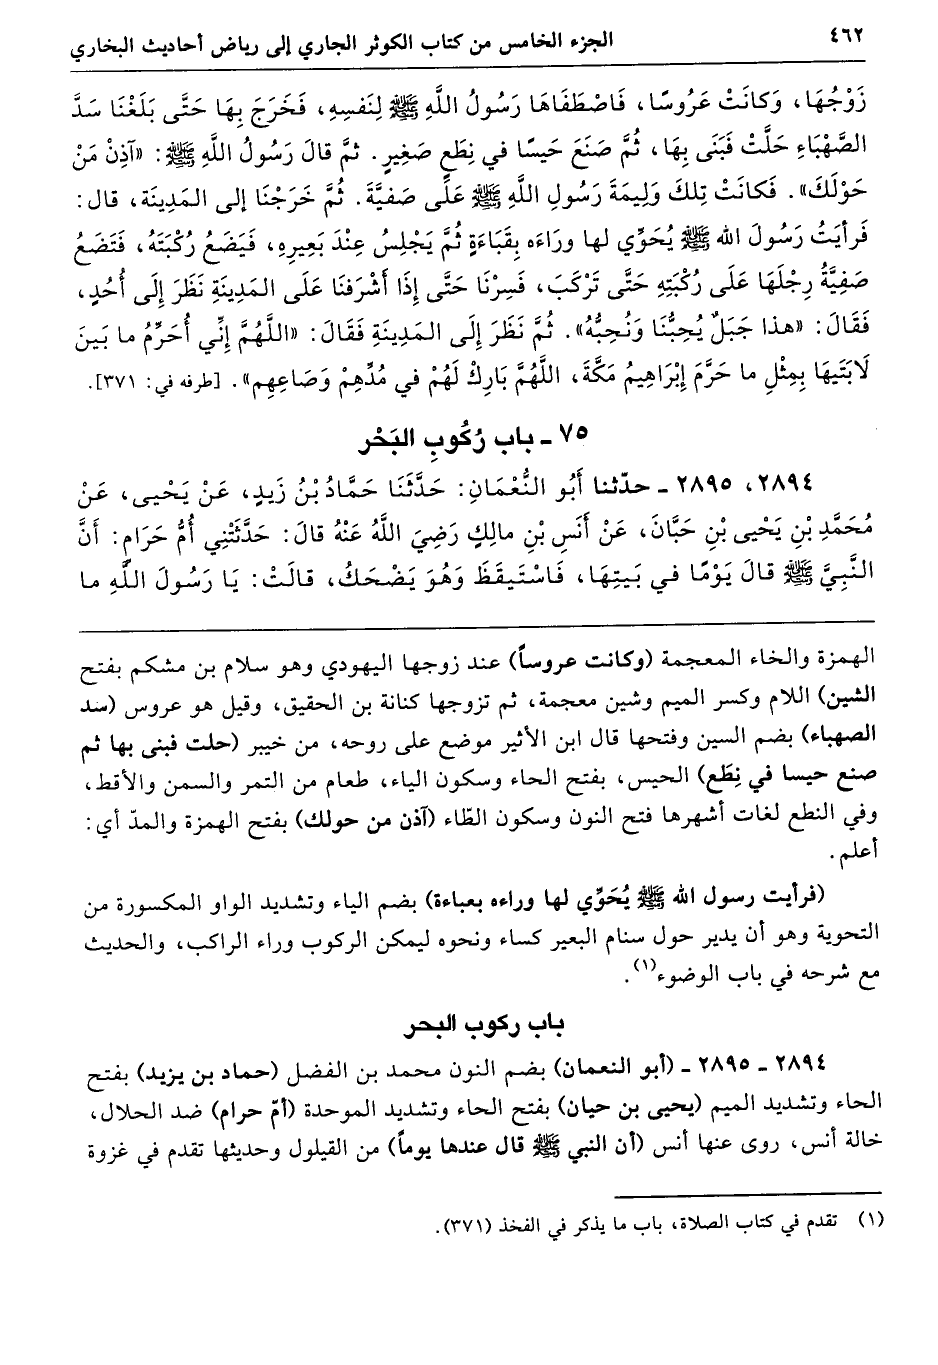 ٤٦٢ الجزء الخامس من كتاب الكوثر الجاري إلى رياض أحاديث البخاري
زَوْجُهَا، وَكَانَتْ عَرُوسًا، فَاصْطَفَاهَا رَسُولُ اللَّهِ ﷺ لِنَفسِهِ، فَخَرَجَ بِهَا حَتَّى بَلَغْنَا سَدَّ
الصَّهْبَاءِ حَلَّتْ فَبَنَى بِهَا، ثُمَّ صَنَعَ حَيسًا في نِطَعٍ صَغِيرٍ. ثمَّ قالَ رَسُولُ اللَّهِ ﷺ: «آذِنْ مَنْ
حَوْلَكَ». فَكانَتْ تِلكَ وَلِيمَةَ رَسُولِ اللَّهِ ﷺ عَلَى صَفيَّةَ. ثُمَّ خَرَجْنَا إلى المَدِينَة، قال:
فَرأَيتُ رَسُولَ الله ﷺ يُحَوِّي لها ورَاءَه بِقَبَاءَةٍ ثُمَّ يَجْلِسُ عِنْدَ بَعِيرِهِ، فَيَضَعُ رُكْبَتَهُ، فَتَضَعُ
صَفِيَّةُ رِجْلَهَا عَلَى رُكْبَتِهِ حَتَّى تَرْكَبَ، فَسِرْنَا حَتَّى إِذَا أَشْرَفنَا عَلَى المَدِينَةِ نَظَرَ إِلَى أُحُدٍ،
فَقَالَ: «هذا جَبَلٌ يُحِبُّنَا وَنُحِبُّهُ». ثُمَّ نَظَرَ إِلَى المَدِينَةِ فَقَالَ: «اللَّهُمَّ إِنِّي أُحَرِّمُ ما بَينَ
لَابَتَيهَا بِمِثْلِ ما حَرَّمَ إِبْرَاهِيمُ مَكَّةَ، اللَّهُمَّ بَارِكْ لَهُمْ في مُدِّهِمْ وَصَاعِهِم». [طرفه في: ٣٧١].
٧٥ ـ باب رُكُوبِ البَحْرِ
٢٨٩٤، ٢٨٩٥ ـ حدّثنا أَبُو النُّعْمَانِ: حَدَّثَنَا حَمَّادُ بْنُ زَيدٍ، عَنْ يَحْيى، عَنْ
مُحَمَّدِ بْنِ يَحْيى بْنِ حَبَّانَ، عَنْ أَنَسِ بْنِ مالِكٍ رَضِيَ اللَّهُ عَنْهُ قالَ: حَدَّثَتْنِي أُمُّ حَرَامٍ: أَنَّ
النَّبِيَّ ﷺ قالَ يَوْمًا في بَيتِهَا، فَاسْتَيقَظَ وَهُوَ يَضْحَكُ، قالَتْ: يَا رَسُولَ اللَّهِ ما
الهمزة والخاء المعجمة (وكانت عروساً) عند زوجها اليهودي وهو سلام بن مشكم بفتح
الشين) اللام وكسر الميم وشين معجمة، ثم تزوجها كنانة بن الحقيق، وقيل هو عروس (سد
الصهباء) بضم السين وفتحها قال ابن الأثير موضع على روحه، من خيبر (حلت فبنى بها ثم
صنع حيسا في نِطَع) الحيس، بفتح الحاء وسكون الياء، طعام من التمر والسمن والأقط،
وفي النطع لغات أشهرها فتح النون وسكون الطّاء (آذن من حولك) بفتح الهمزة والمدّ أي:
أعلم.
(فرأيت رسول الله ﷺ يُحَوِّي لها وراءه بعباءة) بضم الياء وتشديد الواو المكسورة من
التحوية وهو أن يدير حول سنام البعير كساء ونحوه ليمكن الركوب وراء الراكب، والحديث
مع شرحه في باب الوضوء(١).
باب ركوب البحر
٢٨٩٤ ـ ٢٨٩٥ ـ (أبو النعمان) بضم النون محمد بن الفضل (حماد بن يزيد) بفتح
الحاء وتشديد الميم (يحيى بن حيان) بفتح الحاء وتشديد الموحدة (أمّ حرام) ضد الحلال،
خالة أنس، روى عنها أنس (أن النبي ﷺ قال عندها يوماً) من القيلول وحديثها تقدم في غزوة
(١) تقدم في كتاب الصلاة، باب ما يذكر في الفخذ (٣٧١).